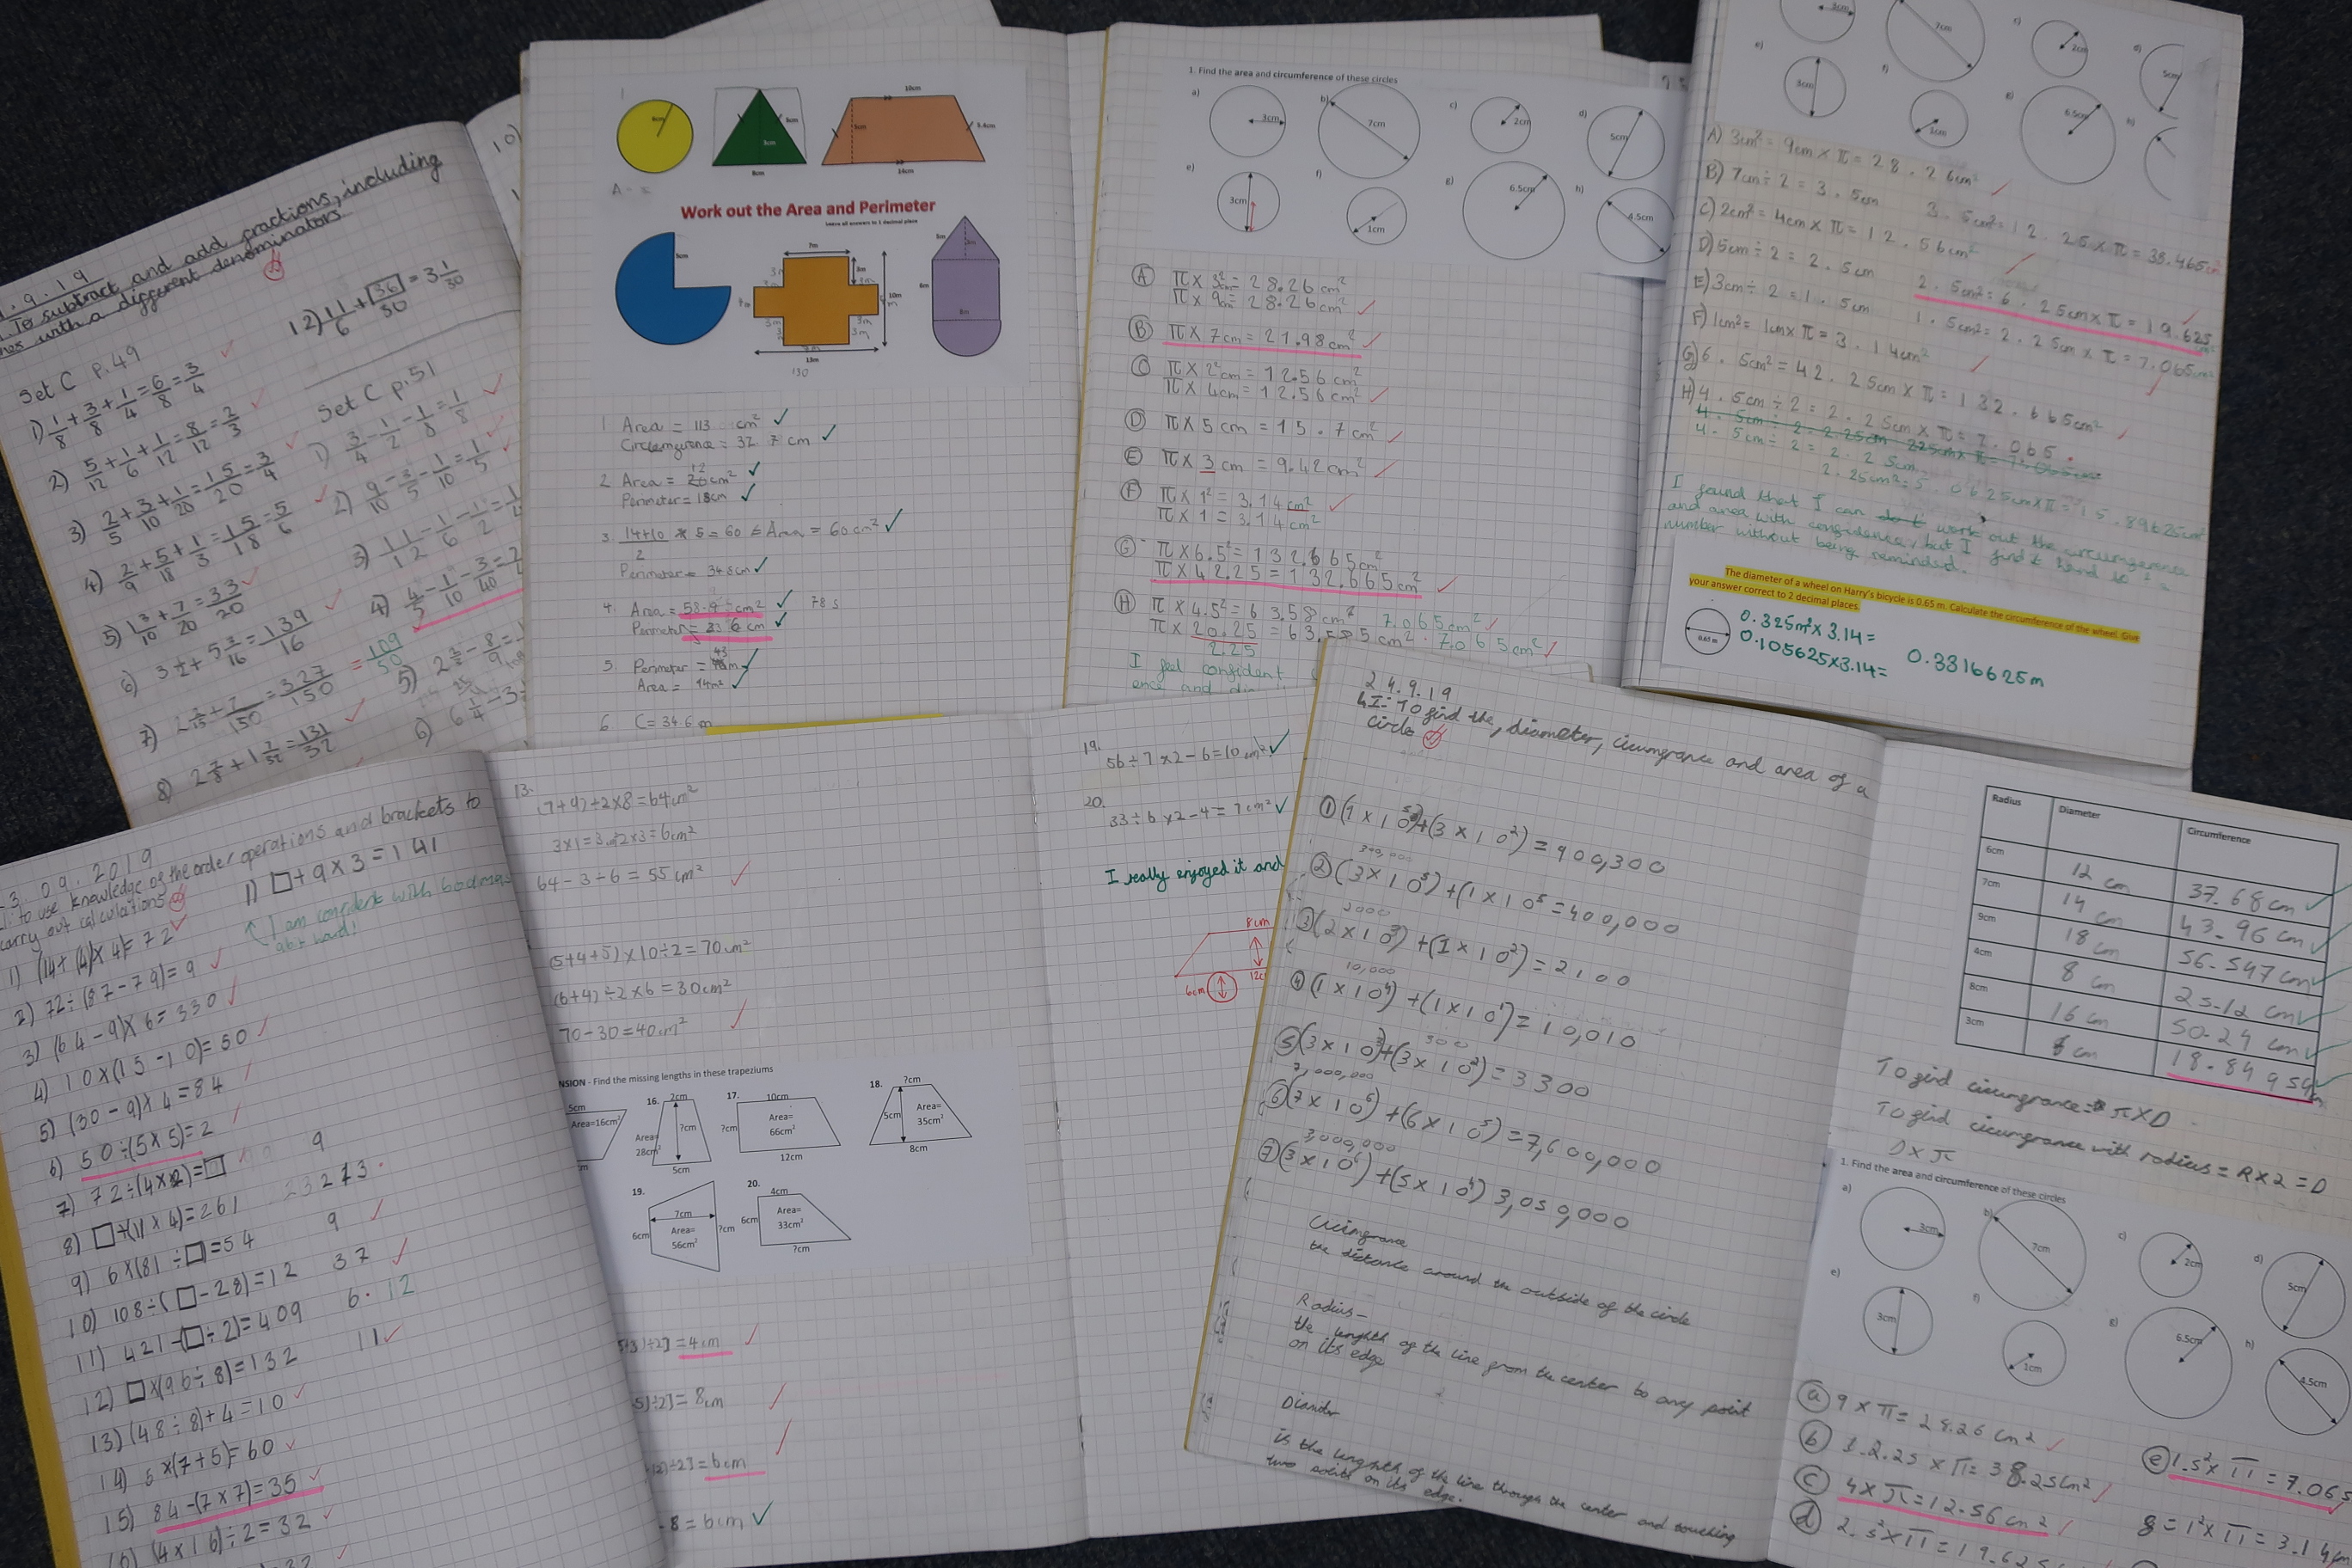 To subtract and add fractions, including
with a different denominators.
Set C p.49
1) 1/8 + 3/8 + 1/4 = 6/8 = 3/4
2) 5/12 + 1/6 + 1/12 = 8/12 = 2/3
3) 2/5 + 3/10 + 1/20 = 15/20 = 3/4
4) 2/9 + 5/18 + 1/3 = 15/18 = 5/6
5) 1 3/10 + 7/20 = 33/20
6) 3 1/2 + 5 3/16 = 139/16
7) = 327/150 = 109/50
8) 2 7/8 + 1 7/32 = 131/32
12) 11/6 + 36/30 = 3 1/30
Set C p.51
1) 3/4 - 1/2 - 1/8 = 1/8
2) 9/10 - 3/5 - 1/10 = 1/5
3) 11/12 - 1/6 - 1/2 =
4) 4/5 - 1/10 - 3/40 =
5)
6)
10)
6cm
5cm
3cm
8cm
10cm
5cm
5.4cm
14cm
Work out the Area and Perimeter
Leave all answers to 1 decimal place
7m
3m
10m
13m
130
1 Area = 113 cm²
Circumgerence = 37.7 cm
2 Area = 12 cm²
Perimeter = 18cm
3. 14+10/2 × 5 = 60 Area = 60cm²
Perimeter = 34.8cm
4. Area = cm²
Perimeter = cm
5. Perimeter =
Area = 94m²
6 C = 34.6 m
1. Find the area and circumference of these circles
a) 3cm
b) 7cm
c) 2cm
d) 5cm
e) 3cm
f) 1cm
g) 6.5cm
h) 4.5cm
A π × 3² = 28.26cm²
π × 9 = 28.26cm²
B π × 7cm = 21.98cm²
C π × 2²cm = 12.56cm²
π × 4cm = 12.56cm²
D π × 5cm = 15.7cm²
E π × 3cm = 9.42cm²
F π × 1² = 3.14cm²
π × 1 = 3.14cm²
G π × 6.5² = 132.665cm²
π × 42.25 = 132.665cm²
H π × 4.5² = 63.58cm² 7.065cm²
π × 20.25 = 63.585cm² 7.065cm²
2.25
I feel confident
ence and
3cm
7cm
c) 2cm
d) 5cm
e) 3cm
f) 1cm
g) 6.5cm
h)
A) 3cm² = 9cm × π = 28.26cm²
B) 7cm ÷ 2 = 3.5cm 3.5cm² = 12.25 × π = 38.465cm²
C) 2cm² = 4cm × π = 12.56cm²
D) 5cm ÷ 2 = 2.5cm 2.5cm² = 6.25cm × π = 19.625
E) 3cm ÷ 2 = 1.5cm 1.5cm² = 2.25cm × π = 7.065cm²
F) 1cm² = 1cm × π = 3.14cm²
G) 6.5cm² = 42.25cm × π = 132.665cm²
H) 4.5cm ÷ 2 = 2.25cm × π = 7.065
4.5cm ÷ 2 = 2.25cm
2.25cm² = 5.0625cm × π = 15.89625cm²
I found that I can do it work out the circumgerence
and area with confidence, but I find it hard to
number without being reminded.
The diameter of a wheel on Harry's bicycle is 0.65 m. Calculate the circumference of the wheel. Give
your answer correct to 2 decimal places.
0.65 m
0.325m² × 3.14 =
0.105625 × 3.14 = 0.3316625m
3.09.2019
to use knowledge of the order operations and brackets to
carry out calculations
1) (14 + (4) × 4) = 72
2) 72 ÷ (87 - 79) = 9
3) (64 - 9) × 6 = 330
4) 10 × (15 - 10) = 50
5) (30 - 9) × 4 = 84
6) 50 ÷ (5 × 5) = 2
7) 72 ÷ (4 × 2) = □ 9
8) □ + (11 × 4) = 261
9) 6 × (81 ÷ □) = 54 9
10) 108 ÷ (□ - 28) = 12 37
11) 421 - (□ ÷ 2) = 409 6. 12
12) □ × (96 ÷ 8) = 132 11
13) (48 ÷ 8) + 4 = 10
14) 5 × (7 + 5) = 60
15) 84 - (7 × 7) = 35
16) (4 × 16) ÷ 2 = 32
1) □ + 9 × 3 = 141
I am confident with bodmas
abit hard!
13.
(7+9)÷2×8=64cm²
3×1=3÷2×3=6cm²
64 - 3 - 6 = 55cm²
(5+4+5)×10÷2=70cm²
(6+4)÷2×6=30cm²
70-30=40cm²
NSION - Find the missing lengths in these trapeziums
5cm
Area=16cm²
16. 2cm
Area=
28cm²
?cm
5cm
17. 10cm
?cm
Area=
66cm²
12cm
18. ?cm
5cm
Area=
35cm²
8cm
19.
7cm
6cm
Area=
56cm²
?cm
20. 4cm
6cm
Area=
33cm²
?cm
÷2] = 4cm
5]÷2] = 8cm
÷2] = 6cm
- 8 = 6cm
19.
56÷7×2-6=10cm²
20.
33÷6×2-4=7cm²
I really enjoyed it and
8cm
12c
6cm
24.9.19
LI: To find the, diameter, cicumgrance and area of a
circle
1 (9 × 10⁵) + (3 × 10²) = 900,300
300,000
2 (3 × 10⁵) + (1 × 10⁵ = 400,000
2000
3 (2 × 10³) + (1 × 10²) = 2100
10,000
4 (1 × 10⁴) + (1 × 10¹) = 10,010
300
5 (3 × 10³) + (3 × 10²) = 3300
7,000,000
6 (7 × 10⁶) + (6 × 10⁵) = 7,600,000
3,000,000
7 (3 × 10⁶) + (5 × 10⁴) 3,050,000
Cicumgrance
the distance around the outside of the circle
Radius -
the lenghth of the line from the center to any poiit
on its edge
Diamder
is the lenghth of the line through the center and touching
two poiits on its edge.
Radius Diameter Circumference
6cm 12 cm 37.68 cm
7cm 14 cm 43.96 cm
9cm 18 cm 56.547 cm
4cm 8 cm 25.12 cm
8cm 16 cm 50.24 cm
3cm 6 cm 18.84954
To find cicumgrance = π × D
To find cicumgrance with radius = R × 2 = D
D × π
1. Find the area and circumference of these circles
a) 3cm
b) 7cm
c) 2cm
d) 5cm
e) 3cm
f) 1cm
g) 6.5cm
h) 4.5cm
a 9 × π = 28.26 cm²
b 12.25 × π = 38.25cm²
c 4 × π = 12.56 cm²
d 2.5² × π = 19.625
e 1.5² × π = 7.065
8 = 1² × π = 3.14